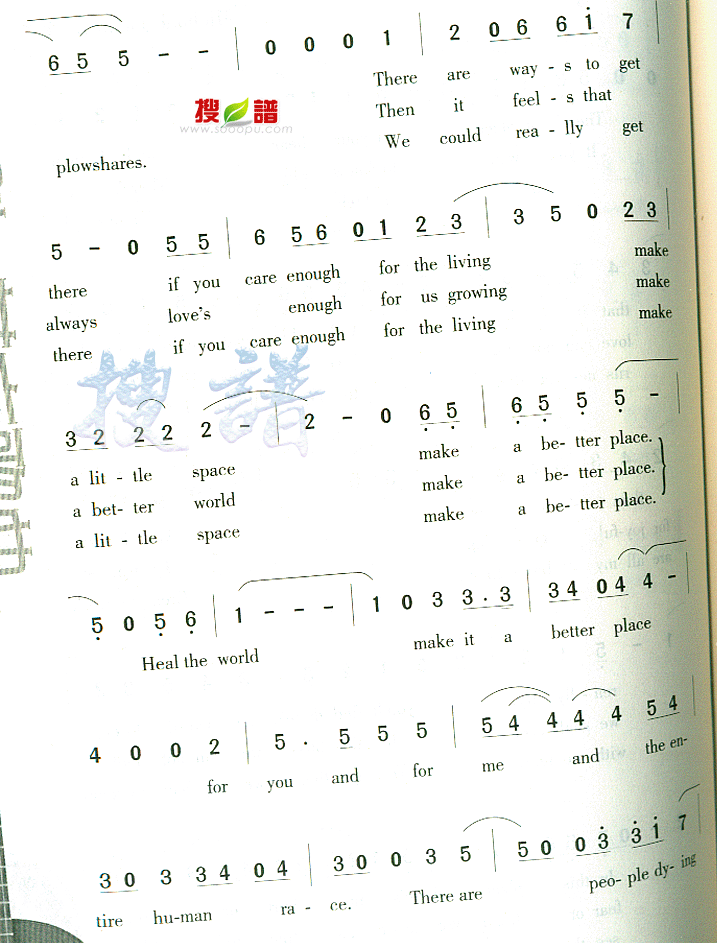 6 5 5 - - | 0 0 0 1 | 2 0 6 6 i 7 |
There are way - s to get
搜 譜
www.sooopu.com
Then it feel - s that
We could rea - lly get
plowshares.
5 - 0 5 5 | 6 5 6 0 1 2 3 | 3 5 0 2 3 |
there if you care enough for the living make
always love's enough for us growing make
there if you care enough for the living make
搜 譜
3 2 2 2 2 - | 2 - 0 6 5 | 6 5 5 5 - |
a lit - tle space make a be- tter place.
a bet- ter world make a be- tter place.
a lit - tle space make a be- tter place.
5 0 5 6 | 1 - - - | 1 0 3 3 . 3 | 3 4 0 4 4 - |
Heal the world make it a better place
4 0 0 2 | 5 . 5 5 5 | 5 4 4 4 4 5 4 |
for you and for me and the en-
3 0 3 3 4 0 4 | 3 0 0 3 5 | 5 0 0 3 3 1 7 |
tire hu-man ra - ce. There are peo- ple dy- ing